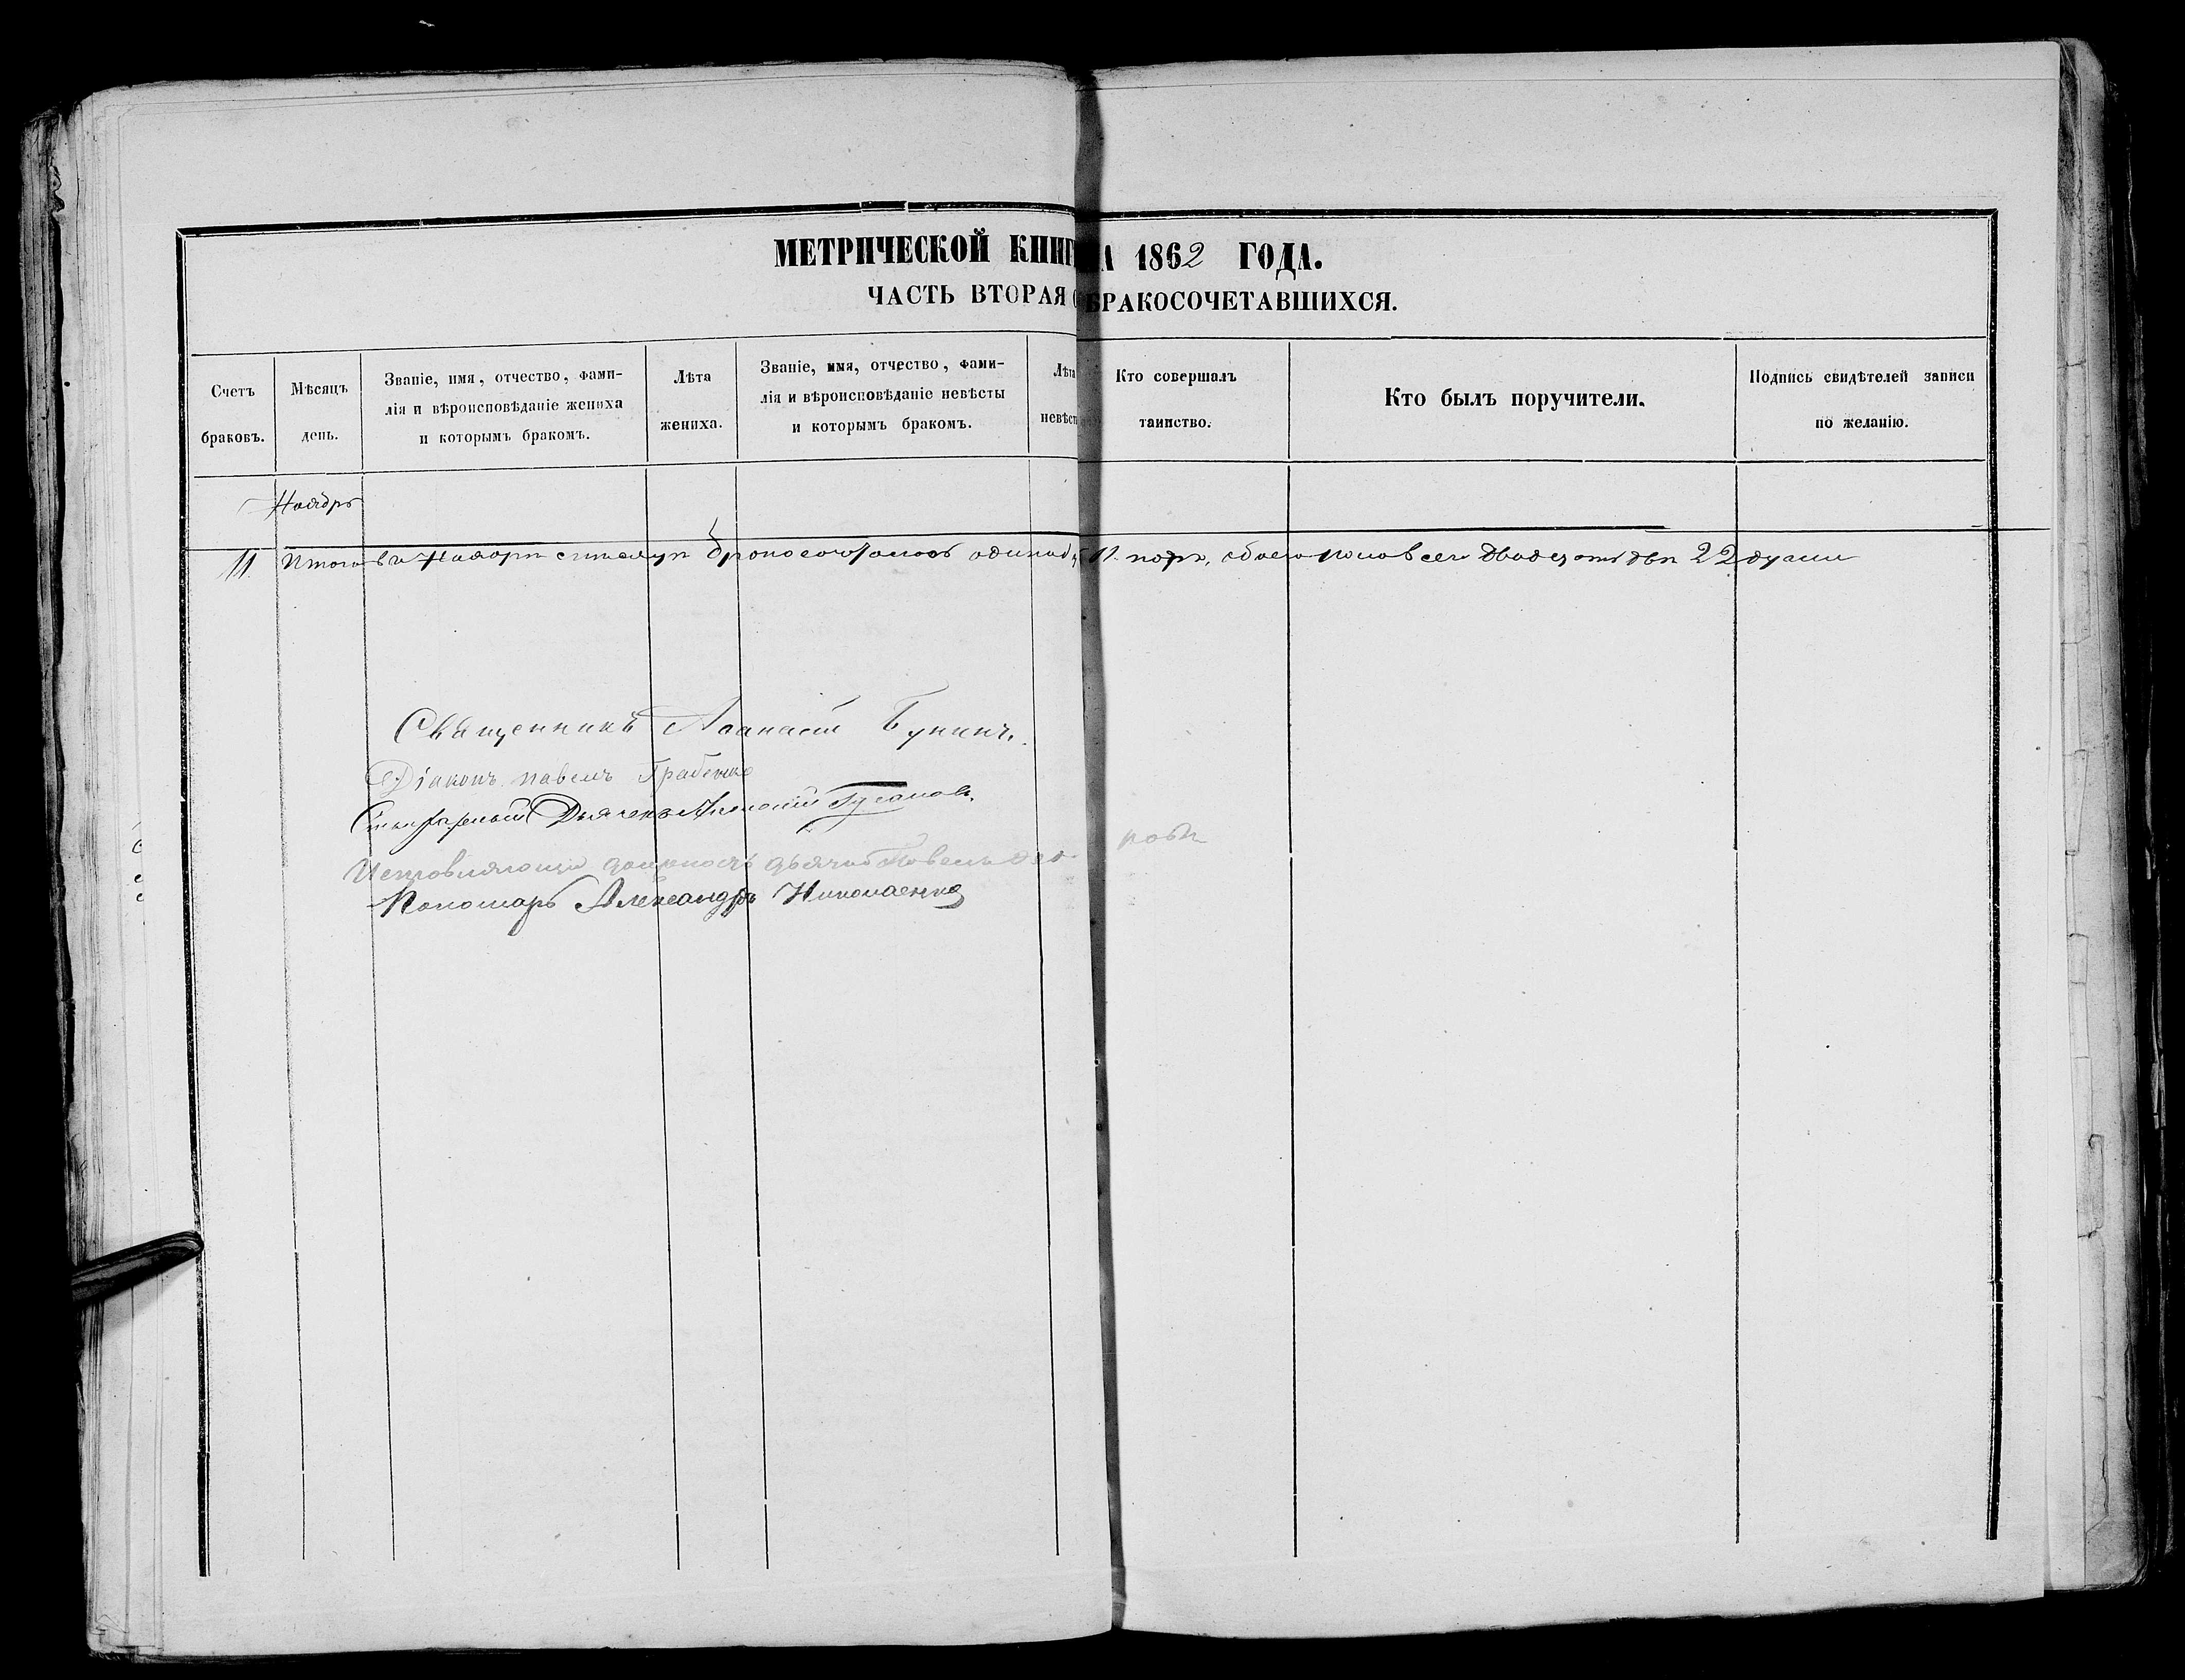 МЕТРИЧЕСКОЙ КНИГ А 1862 ГОДА.
ЧАСТЬ ВТОРАЯ О БРАКОСОЧЕТАВШИХСЯ.
Счетъ браковъ.
Мѣсяцъ день.
Званіе, имя, отчество, фами-
лія и вѣроисповѣданіе жениха
и которымъ бракомъ.
Лѣта жениха.
Званіе, имя, отчество, фами-
лія и вѣроисповѣданіе невѣсты
и которымъ бракомъ.
Лѣта невѣст
Кто совершалъ таинство.
Кто былъ поручители.
Подпись свидѣтелей записи
по желанію.
Ноябрь
11 Итого въ Ноябрѣ мѣсяцѣ 11 обоего пола всего двадцать двѣ 22 души
Священникъ Аѳанасій Бунинъ.
Діаконъ павелъ
Дьячекъ Алексій Гусаковъ.
Исправляющій должность дьячка Павелъ
Пономарь Александръ Николаенко